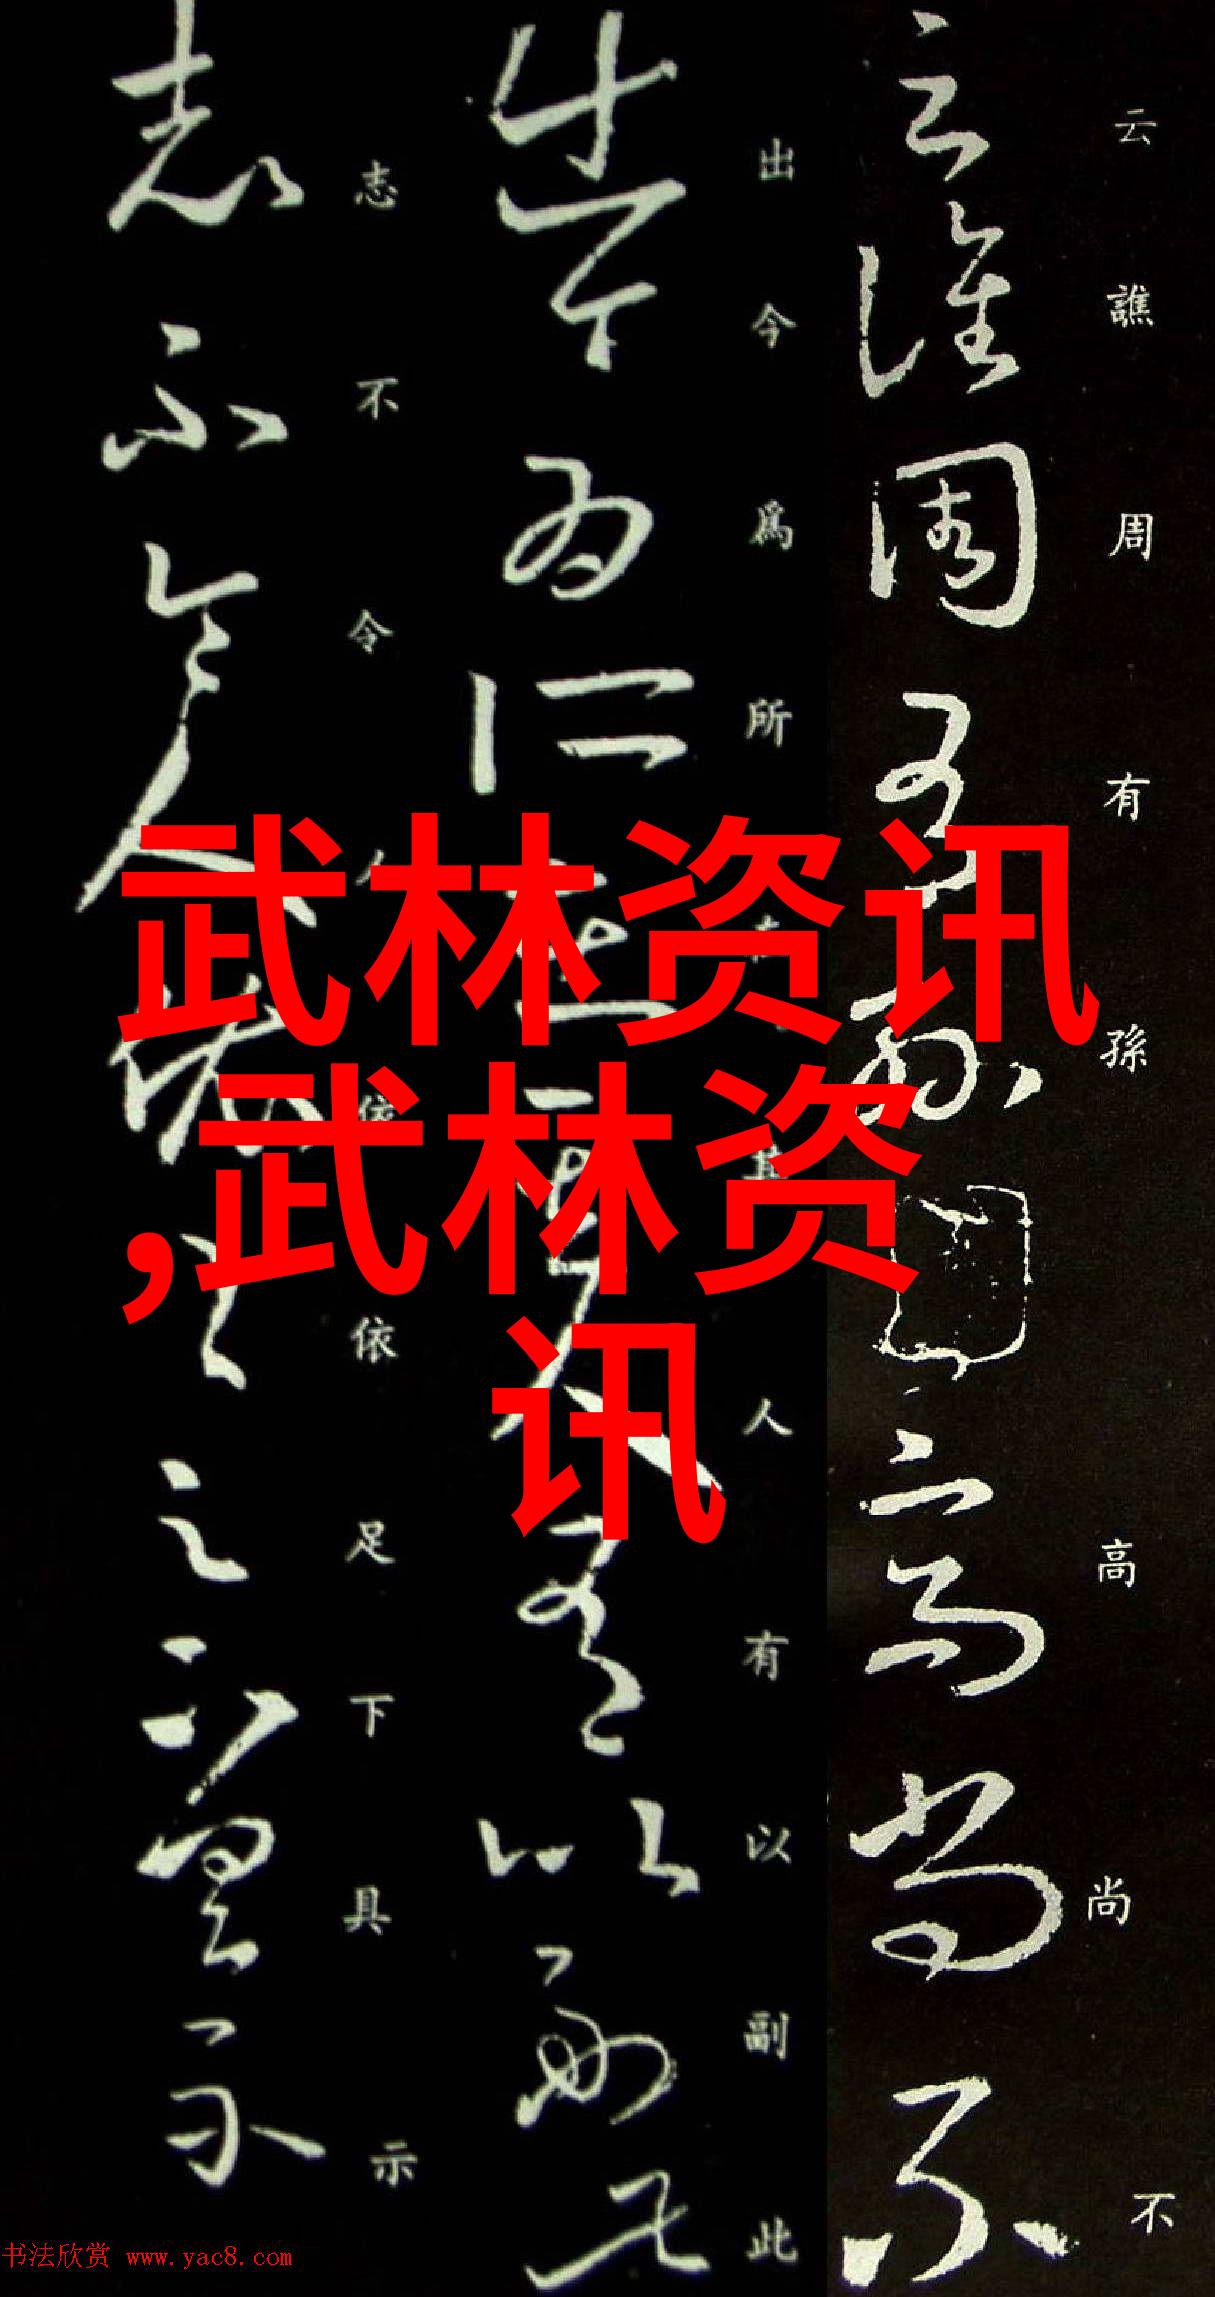 云譙周有孫高尚不
出今為所在其人有以副此
志不令人依依足下具示
武林资讯
,武林资
讯
书法欣赏 www.yac8.com